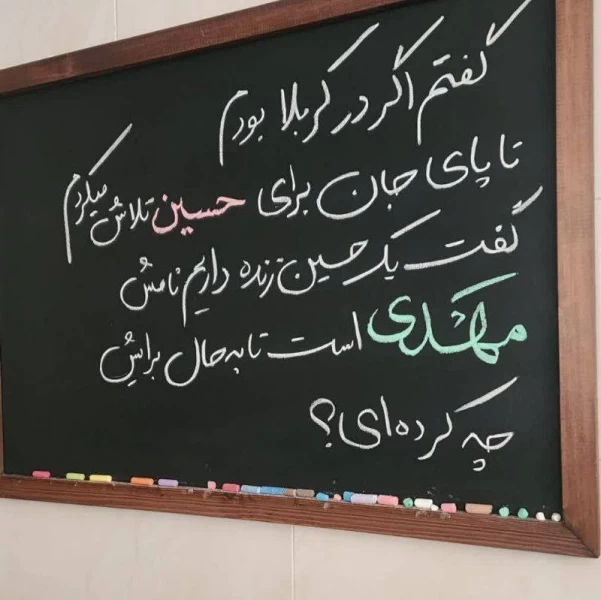 گفتم اگر در کربلا بودم
تا پای جان برای حسین تلاش میکردم
گفت یک حسین زنده داریم نامش
مهدی است تا به حال برایش
چه کرده‌ای؟